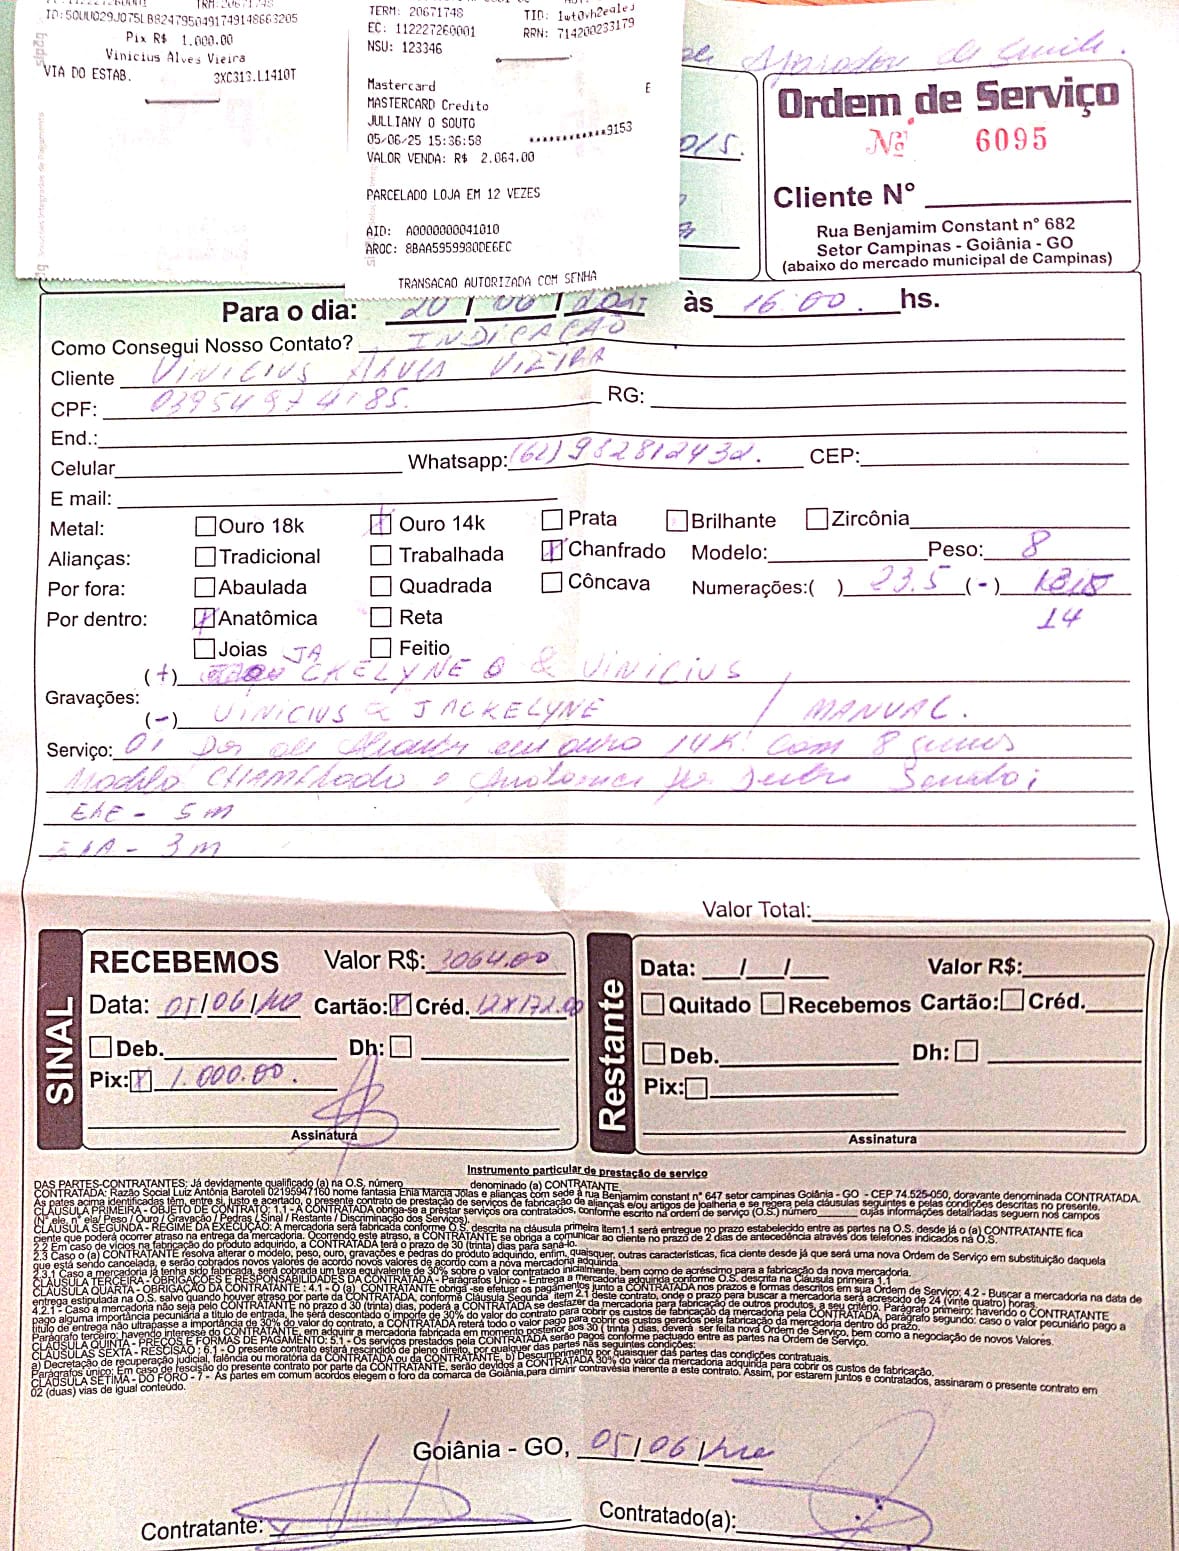 TRM:20671748
ID:50UU029J075LB8247950491749148663205
Pix R$ 1.000.00
Vinicius Alves Vieira
VIA DO ESTAB. 3XC313.L1410T
TERM: 20671748
EC: 112227260001 RRN: 714200233179
NSU: 123346
Mastercard E
MASTERCARD Credito
JULLIANY O SOUTO
05/06/25 15:36:58 ************9153
VALOR VENDA: R$ 2.064.00
PARCELADO LOJA EM 12 VEZES
AID: A0000000041010
AROC: 8BAA5959980DE6EC
TRANSACAO AUTORIZADA COM SENHA
Ordem de Serviço
Nº 6095
Cliente N°
Rua Benjamim Constant n° 682
Setor Campinas - Goiânia - GO
(abaixo do mercado municipal de Campinas)
Para o dia: 20 / 06 / às 16:00. hs.
Como Consegui Nosso Contato? INDICAÇÃO
Cliente VINICIUS ALVES VIEIRA
CPF: 03954974185. RG:
End.:
Celular Whatsapp: (62) 982812432. CEP:
E mail:
Metal: Ouro 18k Ouro 14k Prata Brilhante Zircônia
Alianças: Tradicional Trabalhada Chanfrado Modelo: Peso: 8
Por fora: Abaulada Quadrada Côncava Numerações:( ) 23.5 (-)
Por dentro: Anatômica Reta 14
Joias Feitio
(+) JACKELYNE & VINICIUS
Gravações:
(-) VINICIUS & JACKELYNE / MANUAL.
Serviço: 01 Par de em ouro 14K. com 8 gramas
Modelo CHANFRADO e Anatomica por dentro
ELE - 5 m
ELA - 3 m
Valor Total:
SINAL
RECEBEMOS Valor R$: 3064.00
Data: 05/06/ Cartão: Créd. 12x172.00
Deb. Dh:
Pix: 1.000.00.
Assinatura
Restante
Data: / / Valor R$:
Quitado Recebemos Cartão: Créd.
Deb. Dh:
Pix:
Assinatura
Instrumento particular de prestação de serviço
DAS PARTES-CONTRATANTES: Já devidamente qualificado (a) na O.S, número denominado (a) CONTRATANTE.
CONTRATADA: Razão Social Luiz Antônia Baroteli 02195947160 nome fantasia Enia Marcia Jóias e alianças com sede à rua Benjamim constant n° 647 setor campinas Goiânia - GO - CEP 74.525-050, doravante denominada CONTRATADA.
As partes acima identificadas têm, entre si, justo e acertado, o presente contrato de prestação de serviços de fabricação de alianças e/ou artigos de joalheria e se regera pela cláusulas seguintes e pelas condições descritas no presente.
CLÁUSULA PRIMEIRA - OBJETO DO CONTRATO: 1.1 - A CONTRATADA obriga-se a prestar serviços ora contratados, conforme escrito na ordem de serviço (O.S.) número cujas informações detalhadas seguem nos campos
(N° ele, n° ela/ Peso / Ouro / Gravação / Pedras / Sinal / Restante / Discriminação dos Serviços).
CLÁUSULA SEGUNDA - REGIME DA EXECUÇÃO: A mercadoria será fabricada conforme O.S. descrita na cláusula primeira item1.1 será entregue no prazo estabelecido entre as partes na O.S. desde já o (a) CONTRATANTE fica
ciente que poderá ocorrer atraso na entrega da mercadoria. Ocorrendo este atraso, a CONTRATANTE se obriga a comunicar ao cliente no prazo de 2 dias de antecedência através dos telefones indicados na O.S.
2.2 Em caso de vícios na fabricação do produto adquirido, a CONTRATADA terá o prazo de 30 (trinta) dias para saná-lo.
2.3 Caso o (a) CONTRATANTE resolva alterar o modelo, peso, ouro, gravações e pedras do produto adquirido, enfim, quaisquer, outras características, fica ciente desde já que será uma nova Ordem de Serviço em substituição daquela
que está sendo cancelada, e serão cobrados novos valores de acordo novos valores de acordo com a nova mercadoria adquirida.
2.3.1 Caso a mercadoria já tenha sido fabricada, será cobrada um taxa equivalente de 30% sobre o valor contratado inicialmente, bem como de acréscimo para a fabricação da nova mercadoria.
CLÁUSULA TERCEIRA - OBRIGAÇÕES E RESPONSABILIDADES DA CONTRATADA - Parágrafos Único - Entrega a mercadoria adquirida conforme O.S. descrita na Cláusula primeira 1.1
CLÁUSULA QUARTA - OBRIGAÇÃO DA CONTRATANTE : 4.1 - O (a). CONTRATANTE obriga -se efetuar os pagamentos junto a CONTRATADA nos prazos e formas descritos em sua Ordem de Serviço; 4.2 - Buscar a mercadoria na data de
entrega estipulada na O.S. salvo quando houver atraso por parte da CONTRATADA, conforme Cláusula Segunda item 2.1 deste contrato, onde o prazo para buscar a mercadoria será acrescido de 24 (vinte quatro) horas.
4.2.1 - Caso a mercadoria não seja pelo CONTRATANTE no prazo d 30 (trinta) dias, poderá a CONTRATADA se desfazer da mercadoria para fabricação de outros produtos, a seu critério. Parágrafo primeiro: havendo o CONTRATANTE
pago alguma importância pecuniária a título de entrada, lhe será descontado o importe de 30% do valor do contrato para cobrir os custos de fabricação da mercadoria pela CONTRATADA, parágrafo segundo: caso o valor pecuniário pago a
título de entrega não ultrapasse a importância de 30% do valor do contrato, a CONTRATADA reterá todo o valor pago para cobrir os custos gerados pela fabricação da mercadoria dentro do prazo.
Parágrafo terceiro: havendo interesse do CONTRATANTE, em adquirir a mercadoria fabricada em momento posterior aos 30 ( trinta ) dias, deverá ser feita nova Ordem de Serviço, bem como a negociação de novos Valores.
CLÁUSULA QUINTA - PREÇOS E FORMAS DE PAGAMENTO: 5.1 - Os serviços prestados pela CONTRATADA serão pagos conforme pactuado entre as partes na Ordem de Serviço.
CLÁUSULAS SEXTA - RESCISÃO: 6.1 - O presente contrato estará rescindido de pleno direito, por qualquer das partes nas seguintes condições:
a) Decretação de recuperação judicial, falência ou moratória da CONTRATADA ou da CONTRATANTE, b) Descumprimento por quaisquer das partes das condições contratuais.
Parágrafos único: Em caso de rescisão do presente contrato por parte da CONTRATANTE, serão devidos a CONTRATADA 30% do valor da mercadoria adquirida para cobrir os custos de fabricação.
CLÁUSULA SÉTIMA - DO FORO - 7 - As partes em comum acordos elegem o foro da comarca de Goiânia,para dimirir contravésia inerente a este contrato. Assim, por estarem juntos e contratados, assinaram o presente contrato em
02 (duas) vias de igual conteúdo.
Goiânia - GO, 05/06/
Contratante: Contratado(a):